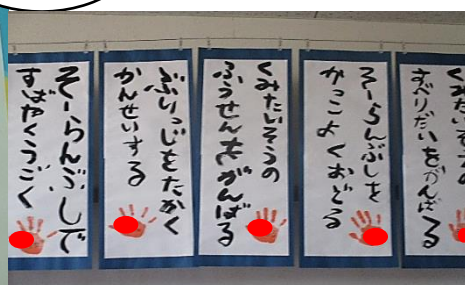 くみたいそうの
すべりだいをがんばる
そーらんぶしを
かっこよくおどる
くみたいそうの
ふうせんをがんばる
ぶりっじをたかく
かんせいする
そーらんぶしで
すばやくうごく